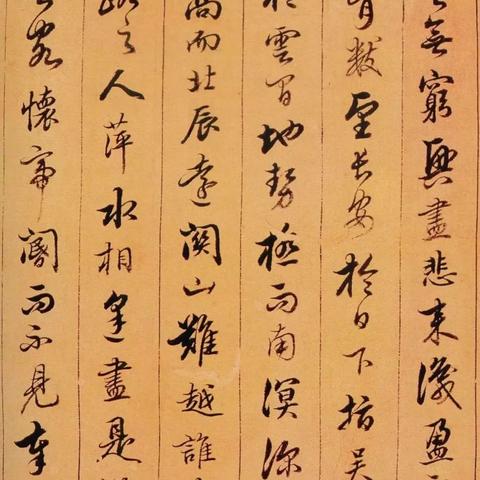 無窮興盡悲來識盈
有數望長安於日下指吳
於雲間地勢極而南溟深
高而北辰遠關山難越誰
路之人萍水相逢盡是
客懷帝閽而不見奉